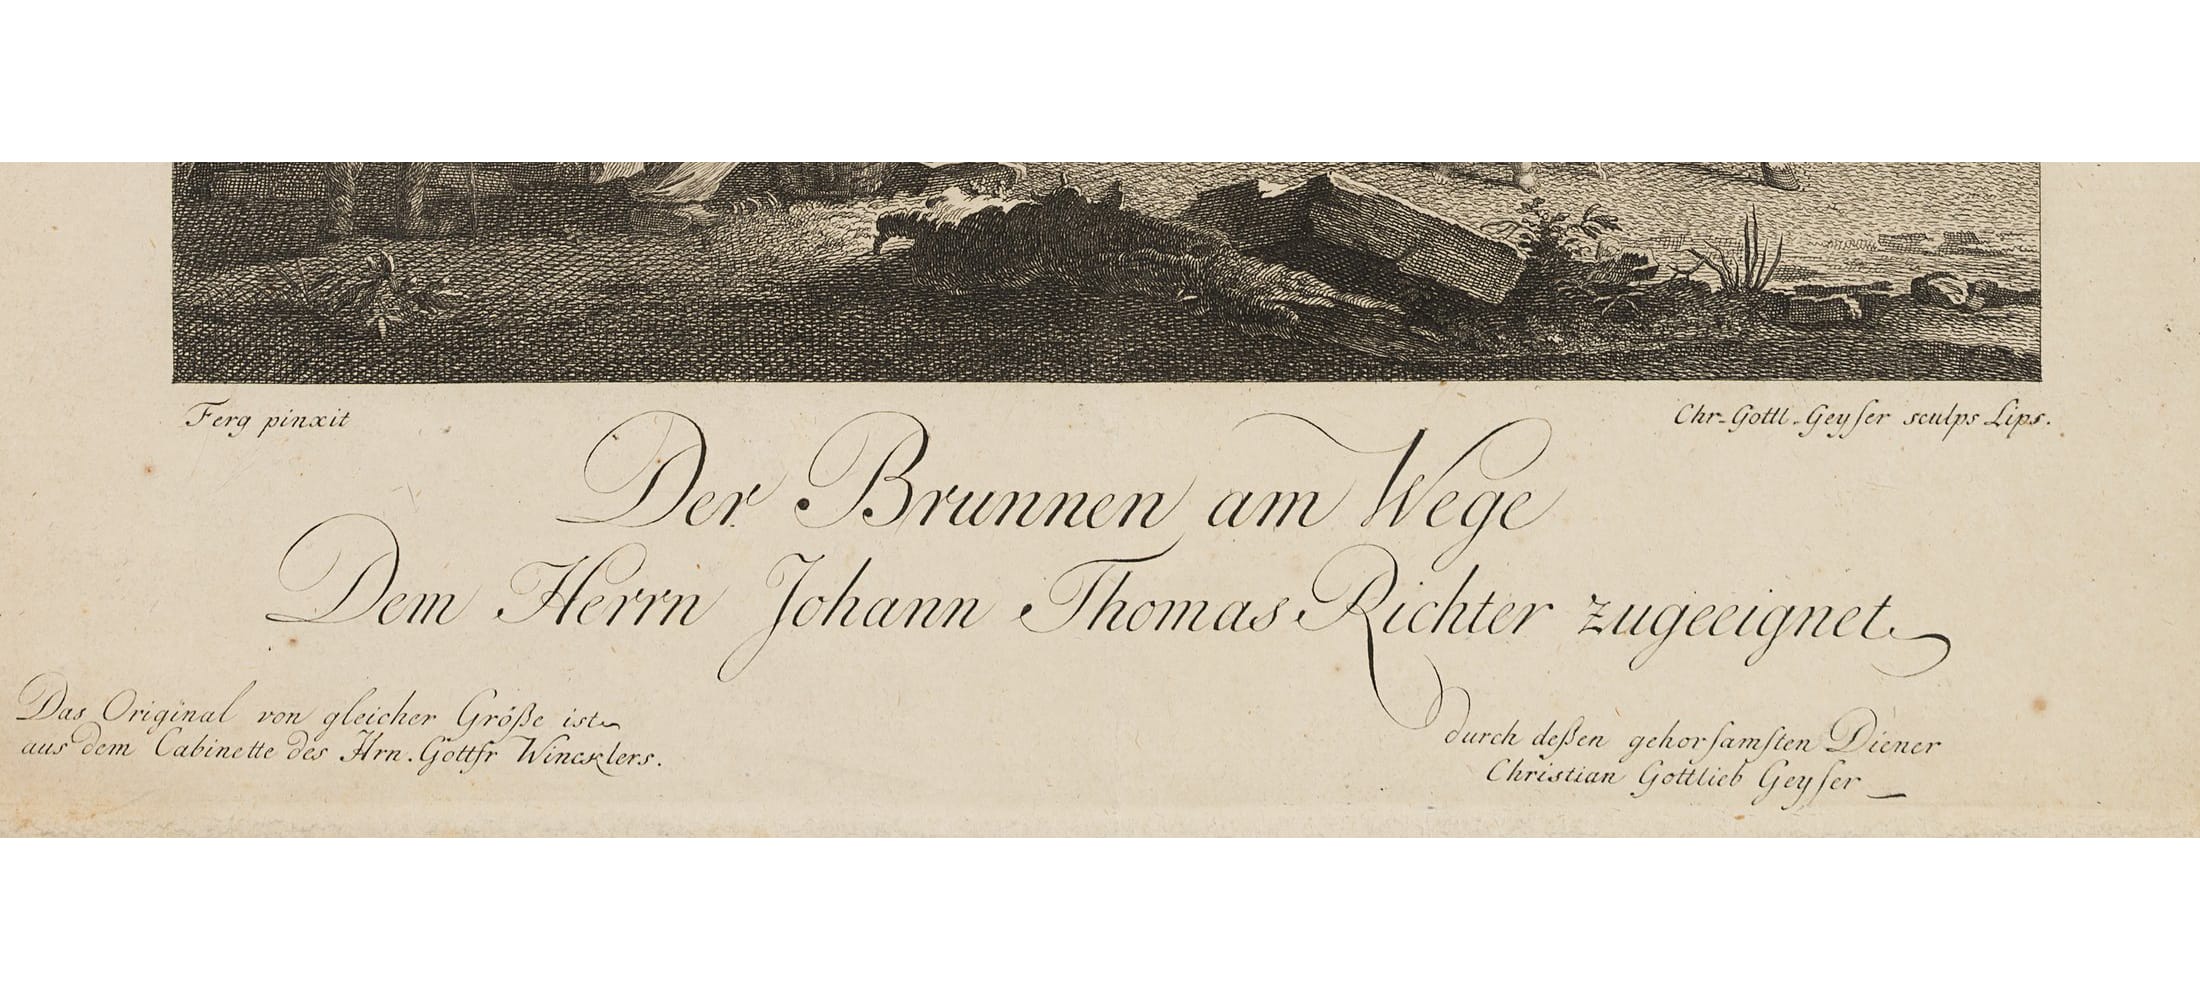 Ferg pinxit
Chr-Gottl-Geyſer sculps Lips.
Der Brunnen am Wege
Dem Herrn Johann Thomas Richter zugeeignet
Das Original von gleicher Größe ist
aus dem Cabinette des Hrn. Gottfr Wincklers.
durch deßen gehorſamſten Diener
Christian Gottlieb Geyſer